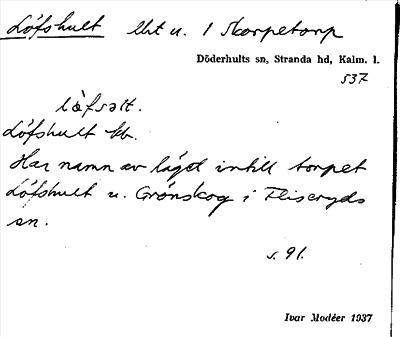 Löfshult lht u. 1 Skorpetorp
Döderhults sn, Stranda hd, Kalm. l.
537
Löfshult kb.
Har namn av läget intill torpet
Löfshult u. Grönskog i Fliseryds
sn.
s. 91.
Ivar Modéer 1937